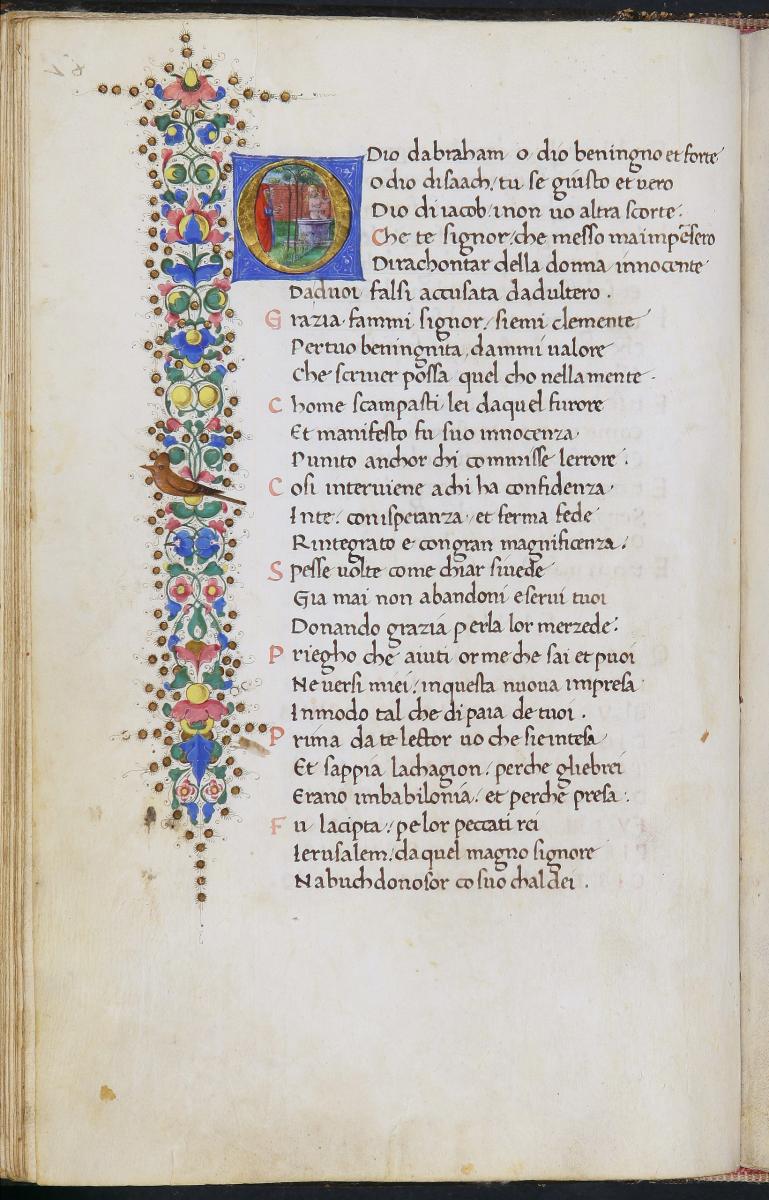 O Dio dabraham o dio beningno et forte
O dio disaach, tu se giusto et vero
Dio di iacob, i non uo altra scorte.
Che te signor, che messo ma impēsero
Dirachontar della donna innocente
Daduoi falsi accusata dadultero.
Grazia fammi signor, siemi clemente
Per tuo beningnita, dammi ualore
Che scriuer possa quel cho nella mente.
Chome scampasti lei daquel furore
Et manifesto fu suo innocenza
Punito anchor chi commisse lerrore.
Cosi interuiene achi ha confidenza
Inte, con isperanza, et ferma fede
Rintegrato e con gran magnificenza.
Spesse uolte come chiar siuede
Gia mai non abandoni e serui tuoi
Donando grazia perla lor merzede.
Priegho che aiuti or me che sai et puoi
Ne uersi miei, inquesta nuoua impresa
Inmodo tal che di paia de tuoi.
Prima da te lector uo che sie intesa
Et sappia lachagion, perche gliebrei
Erano imbabilonia, et perche presa.
Fu lacipta, pelor peccati rei
Ierusalem, da quel magno signore
Nabuchdonosor co suo chaldei.